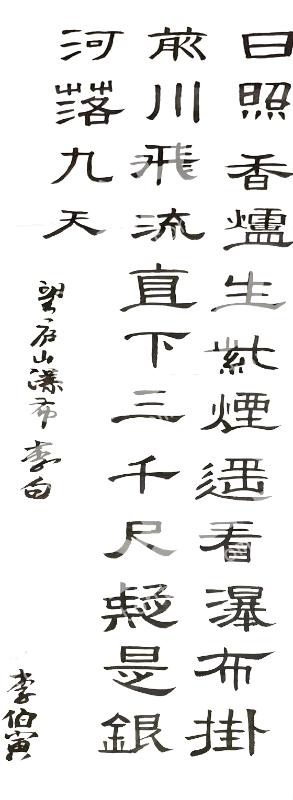 日照香爐生紫煙遥看瀑布掛
前川飛流直下三千尺疑是銀
河落九天
望庐山瀑布李白
李伯寅